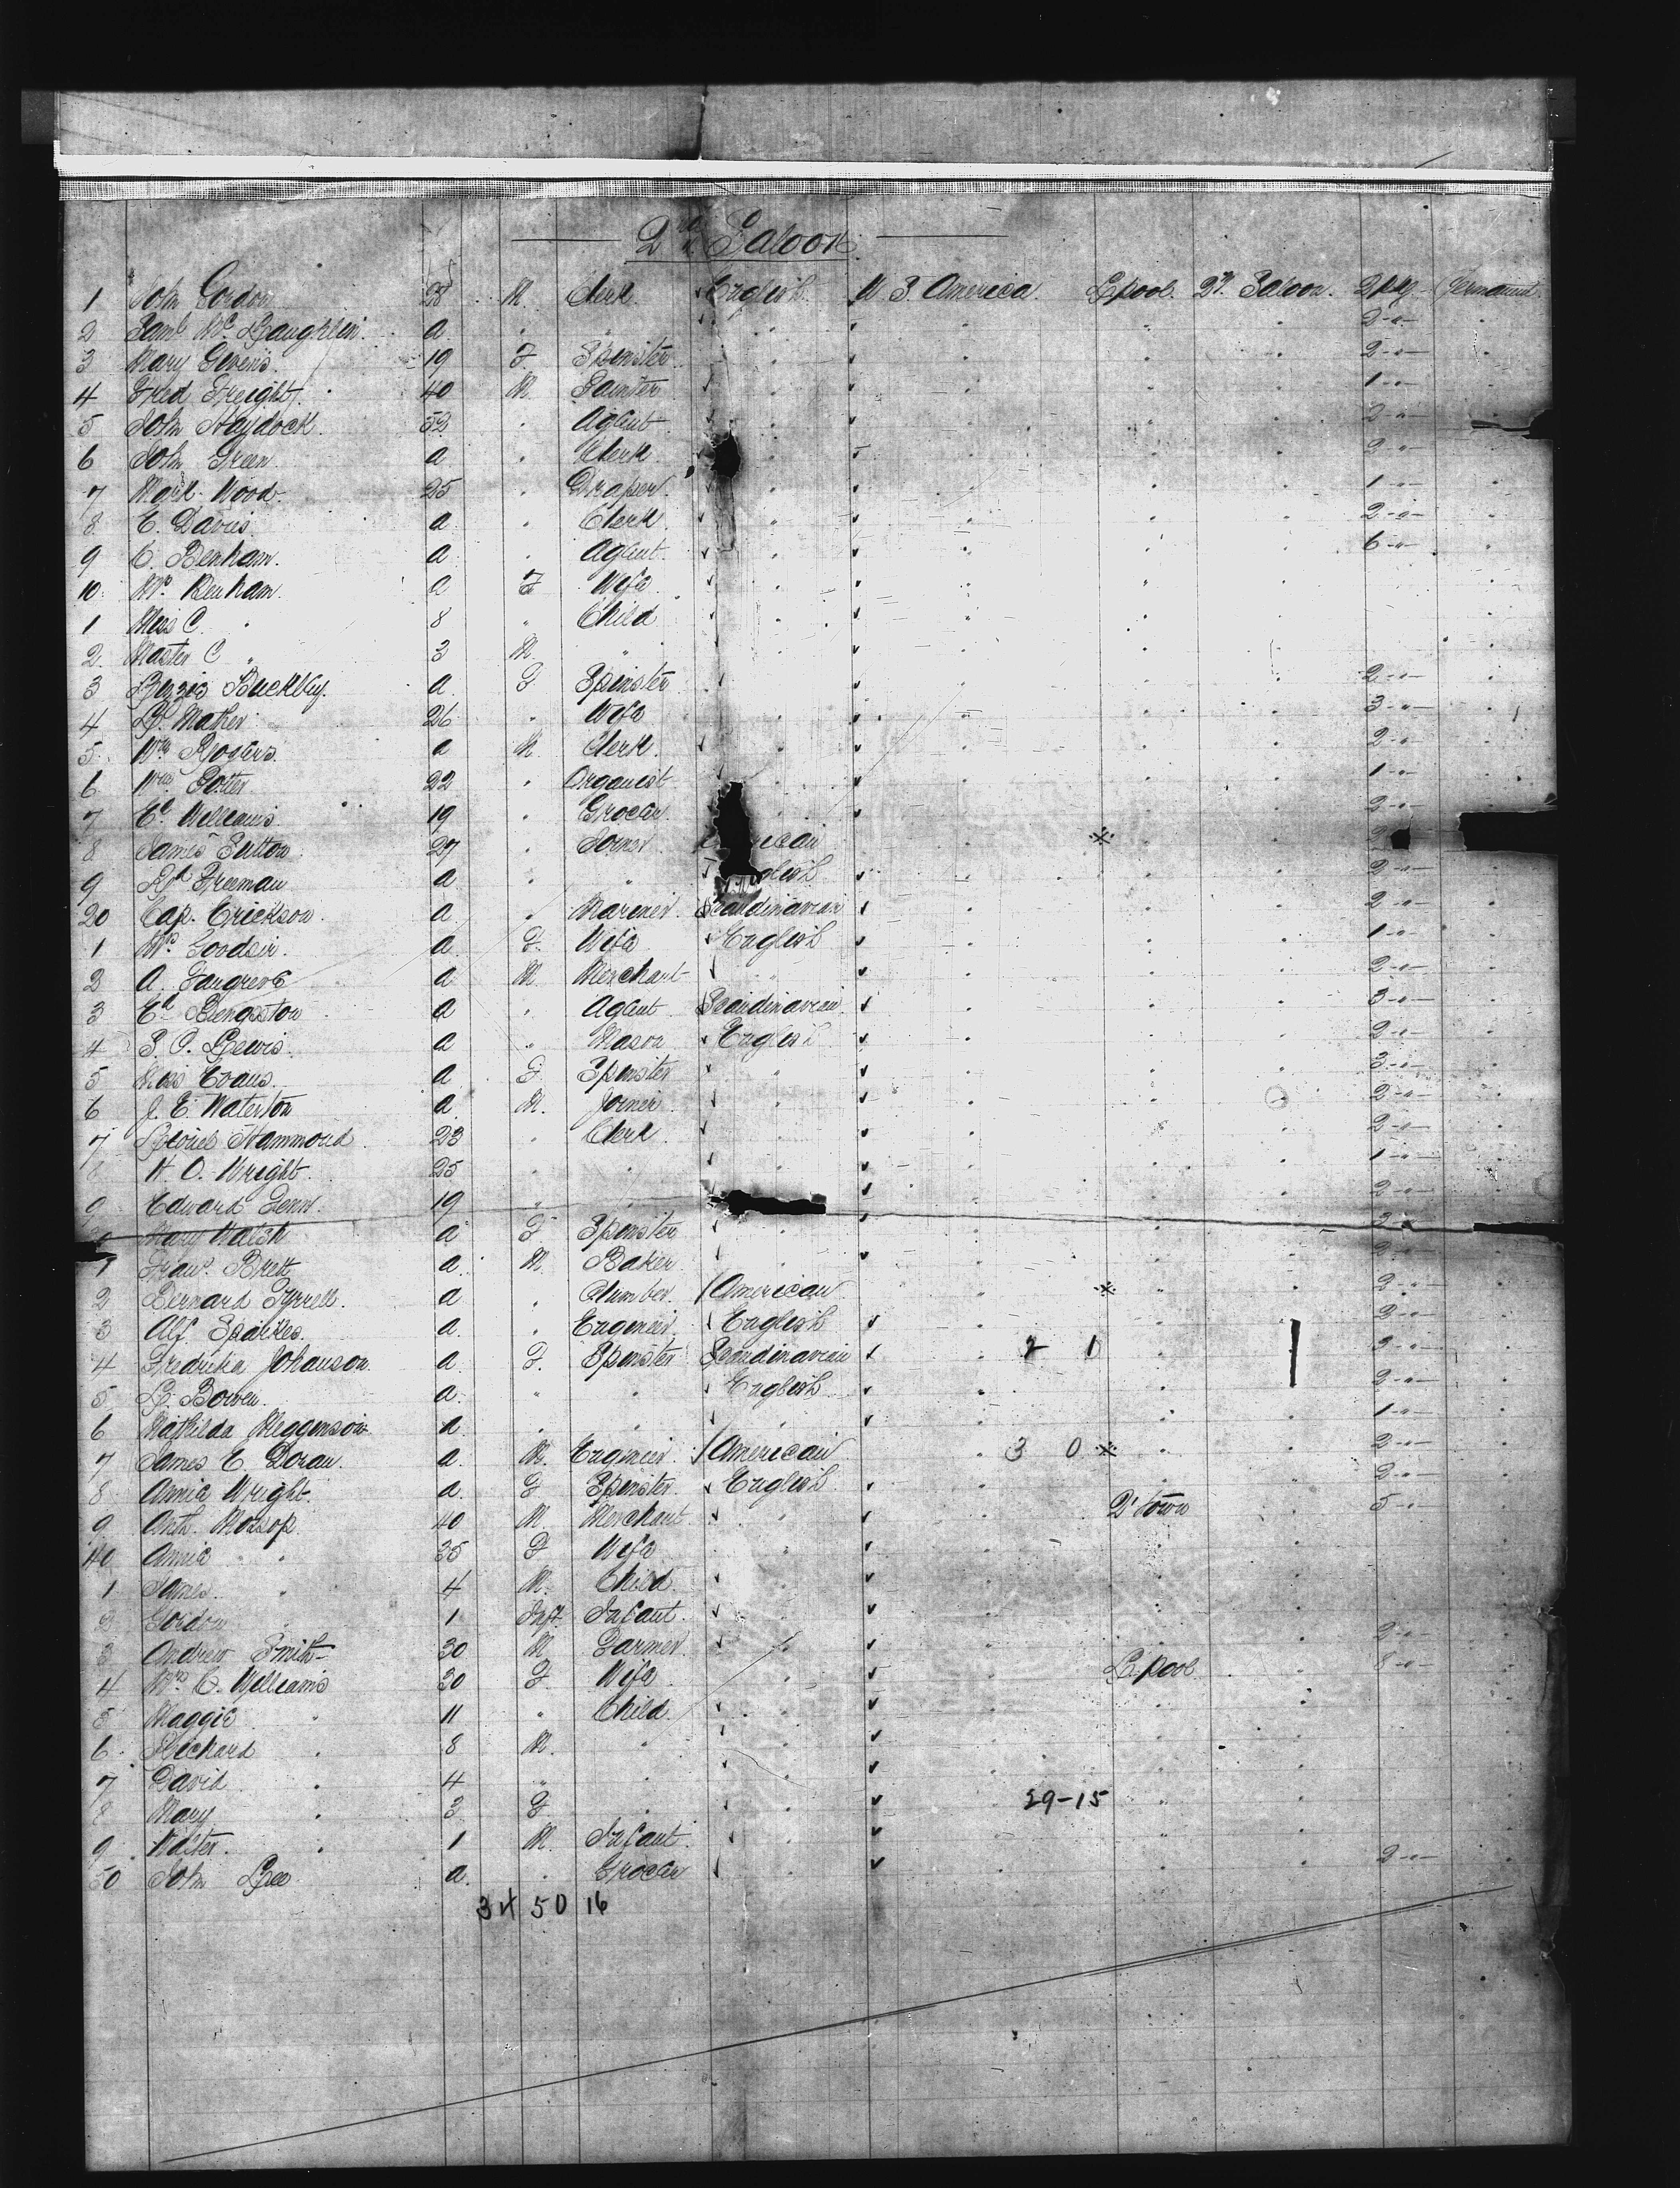 2nd Saloon
1 John Gordon 28 M. Clerk English U S. America. Lpool. 2nd Saloon. 2 pkg Permanent
2 Saml McLaughlin a " " " " " " 2 -"-
3 Mary Givens 19 F Spinster " " " " 2 -"-
4 Fred Freight 40 M. Painter " " " " 1 -"-
5 John Haydock 53 " Agent " " " " 2 -"-
6 John Green a " Clerk " " " " 2 -"-
7 Mark Wood 25 " Draper " " " " 1 -"-
8 E. Davis a " Clerk " " " " 2 -"-
9 C. Benham a " Agent " " " " 6 -"-
10 Mrs. Benham a F Wife " " " "
1 Miss C. " 8 " Child " " " "
2 Master C " 3 M. " " " " "
3 Lizzie Buckley a F Spinster " " " " 2 -"-
4 L. Mather 26 " Wife " " " " 3 -"-
5 Wm Rogers a M Clerk " " " " 2 -"-
6 Wm Potter 22 " Organist " " " " 1 -"-
7 Ed Williams 19 " Grocer " " " " 2 -"-
8 James Sutton 27 " Joiner rican " * " 2
9 Rd Freeman a " " glish " " " 2 -"-
20 Cap. Erickson a " Mariner Scandinavian " " " 2 -"-
1 Mrs Goodsir a F. Wife English " " " 1 -"-
2 A. a M Merchant " " " " 2 -"-
3 Ed Bengston a " Agent Scandinavian " " " 3 -"-
4 S. P. Lewis a " Mason English " " " 2 -"-
5 Miss Evans a F. Spinster " " " " 3 -"-
6 J. E. Waterton a M. Joiner " " " " 2 -"-
7 Hammond 23 " Clerk " " " " 2 -"-
8 H. O. Wright 25 " " " " " " 1 -"-
9 Edward Penn 19 " " " " " 2 -"-
Mary Walsh a F Spinster " " " " 3
1 Fraw. Brett a M. Baker " " " " 2
2 Bernard Tyrrell a " Plumber American " * " 2 -"-
3 Alf Sparkes a " Engineer English " " " 2 -"-
4 Fredrika Johanson a F. Spinster Scandinavian 2 0 " 3 -"-
5 L. Bowen a " " English " " " 2 -"-
6 Mathilda Meggenson a " " " " " " 1 -"-
7 James E Doran a M. Engineer American " 3 0 * " 2 -"-
8 Annie Wright a F Spinster English " " " 2 -"-
9 Anth. Mossop 40 M. Merchant " " Q'town " 5 -"-
40 Annie " 35 F Wife " " " "
1 James " 4 M. Child " " " "
2 Gordon " 1 Inft. Infant " " " "
3 Andrew Smith 30 M Farmer " " " " 2 -"-
4 Mrs C. Williams 30 F. Wife " " Lpool " 8 -"-
5 Maggie " 11 " Child " " " "
6 Richard " 8 M. " " " " "
7 David " 4 " " " " " "
8 Mary " 3 F " " 29-15 " "
9 Walter " 1 M. Infant " " " "
50 John Lee a " Grocer " " " " 2 -"-
34 50 16